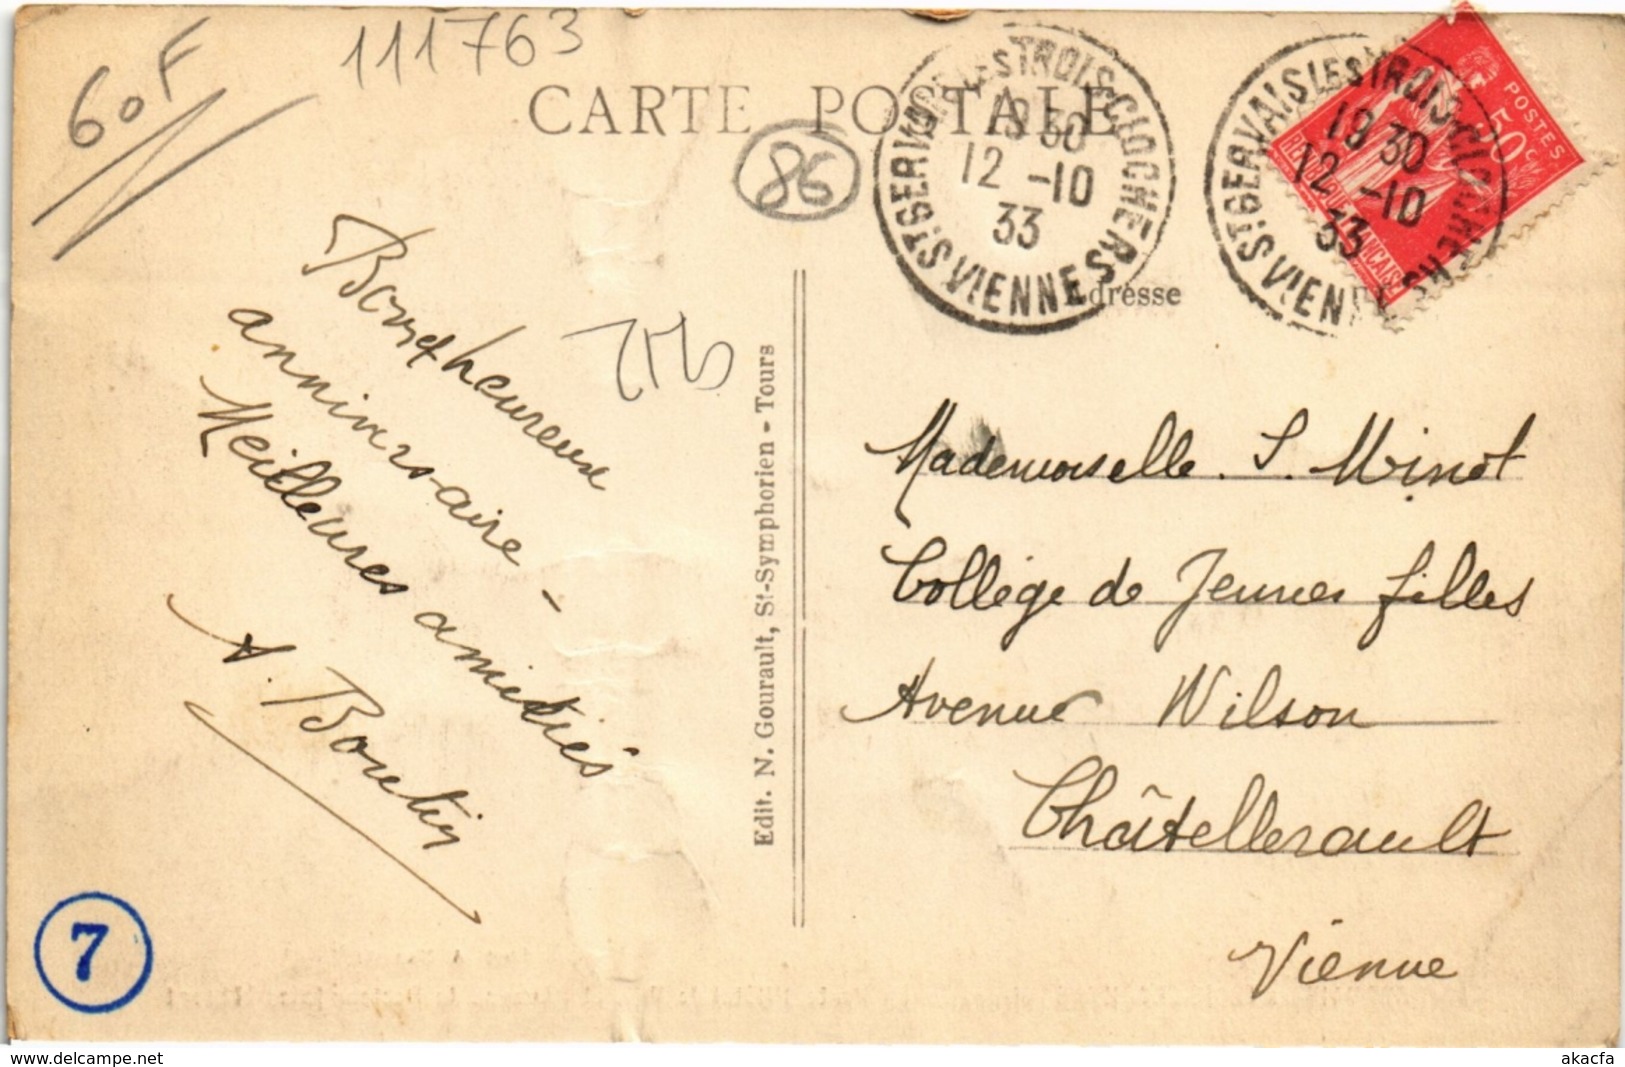 111763
60F
CARTE POSTALE
86
ST GERVAIS LES TROIS CLOCHERS
19 30
12 -10
33
S VIENNE
ST GERVAIS LES TROIS CLOCHERS
19 30
12 -10
33
S VIENNE
POSTES
50c
REPUBLIQUE FRANÇAISE
Adresse
Bon et heureux
anniversaire -
Meilleures amitiés
A. Boutin
Edit. N. Gourault, St-Symphorien - Tours
Mademoiselle S. Minot
Collège de Jeunes filles
Avenue Wilson
Châtellerault
Vienne
7
www.delcampe.net
akacfa